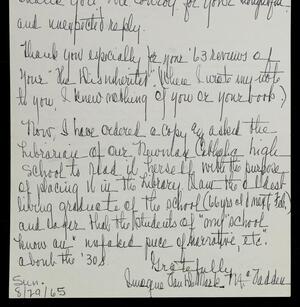 thank you, for your thoughtful
and unexpected reply.
Thank you especially for your '63 reviews of
your "The Disinherited" (When I wrote my note
to you, I knew nothing of you or your book.)
Now, I have ordered a copy & asked the
librarian of our Newman Catholic high
school to read it herself with the purpose
of placing it in the library. I am the oldest
living graduate of the school (66 yrs old next Feb)
and eager that the students of "my" school
know an "unfaked piece of narrative, etc."
about the '30s.
Gratefully,
Sun. Imogene Van
8/29/65 Fadden